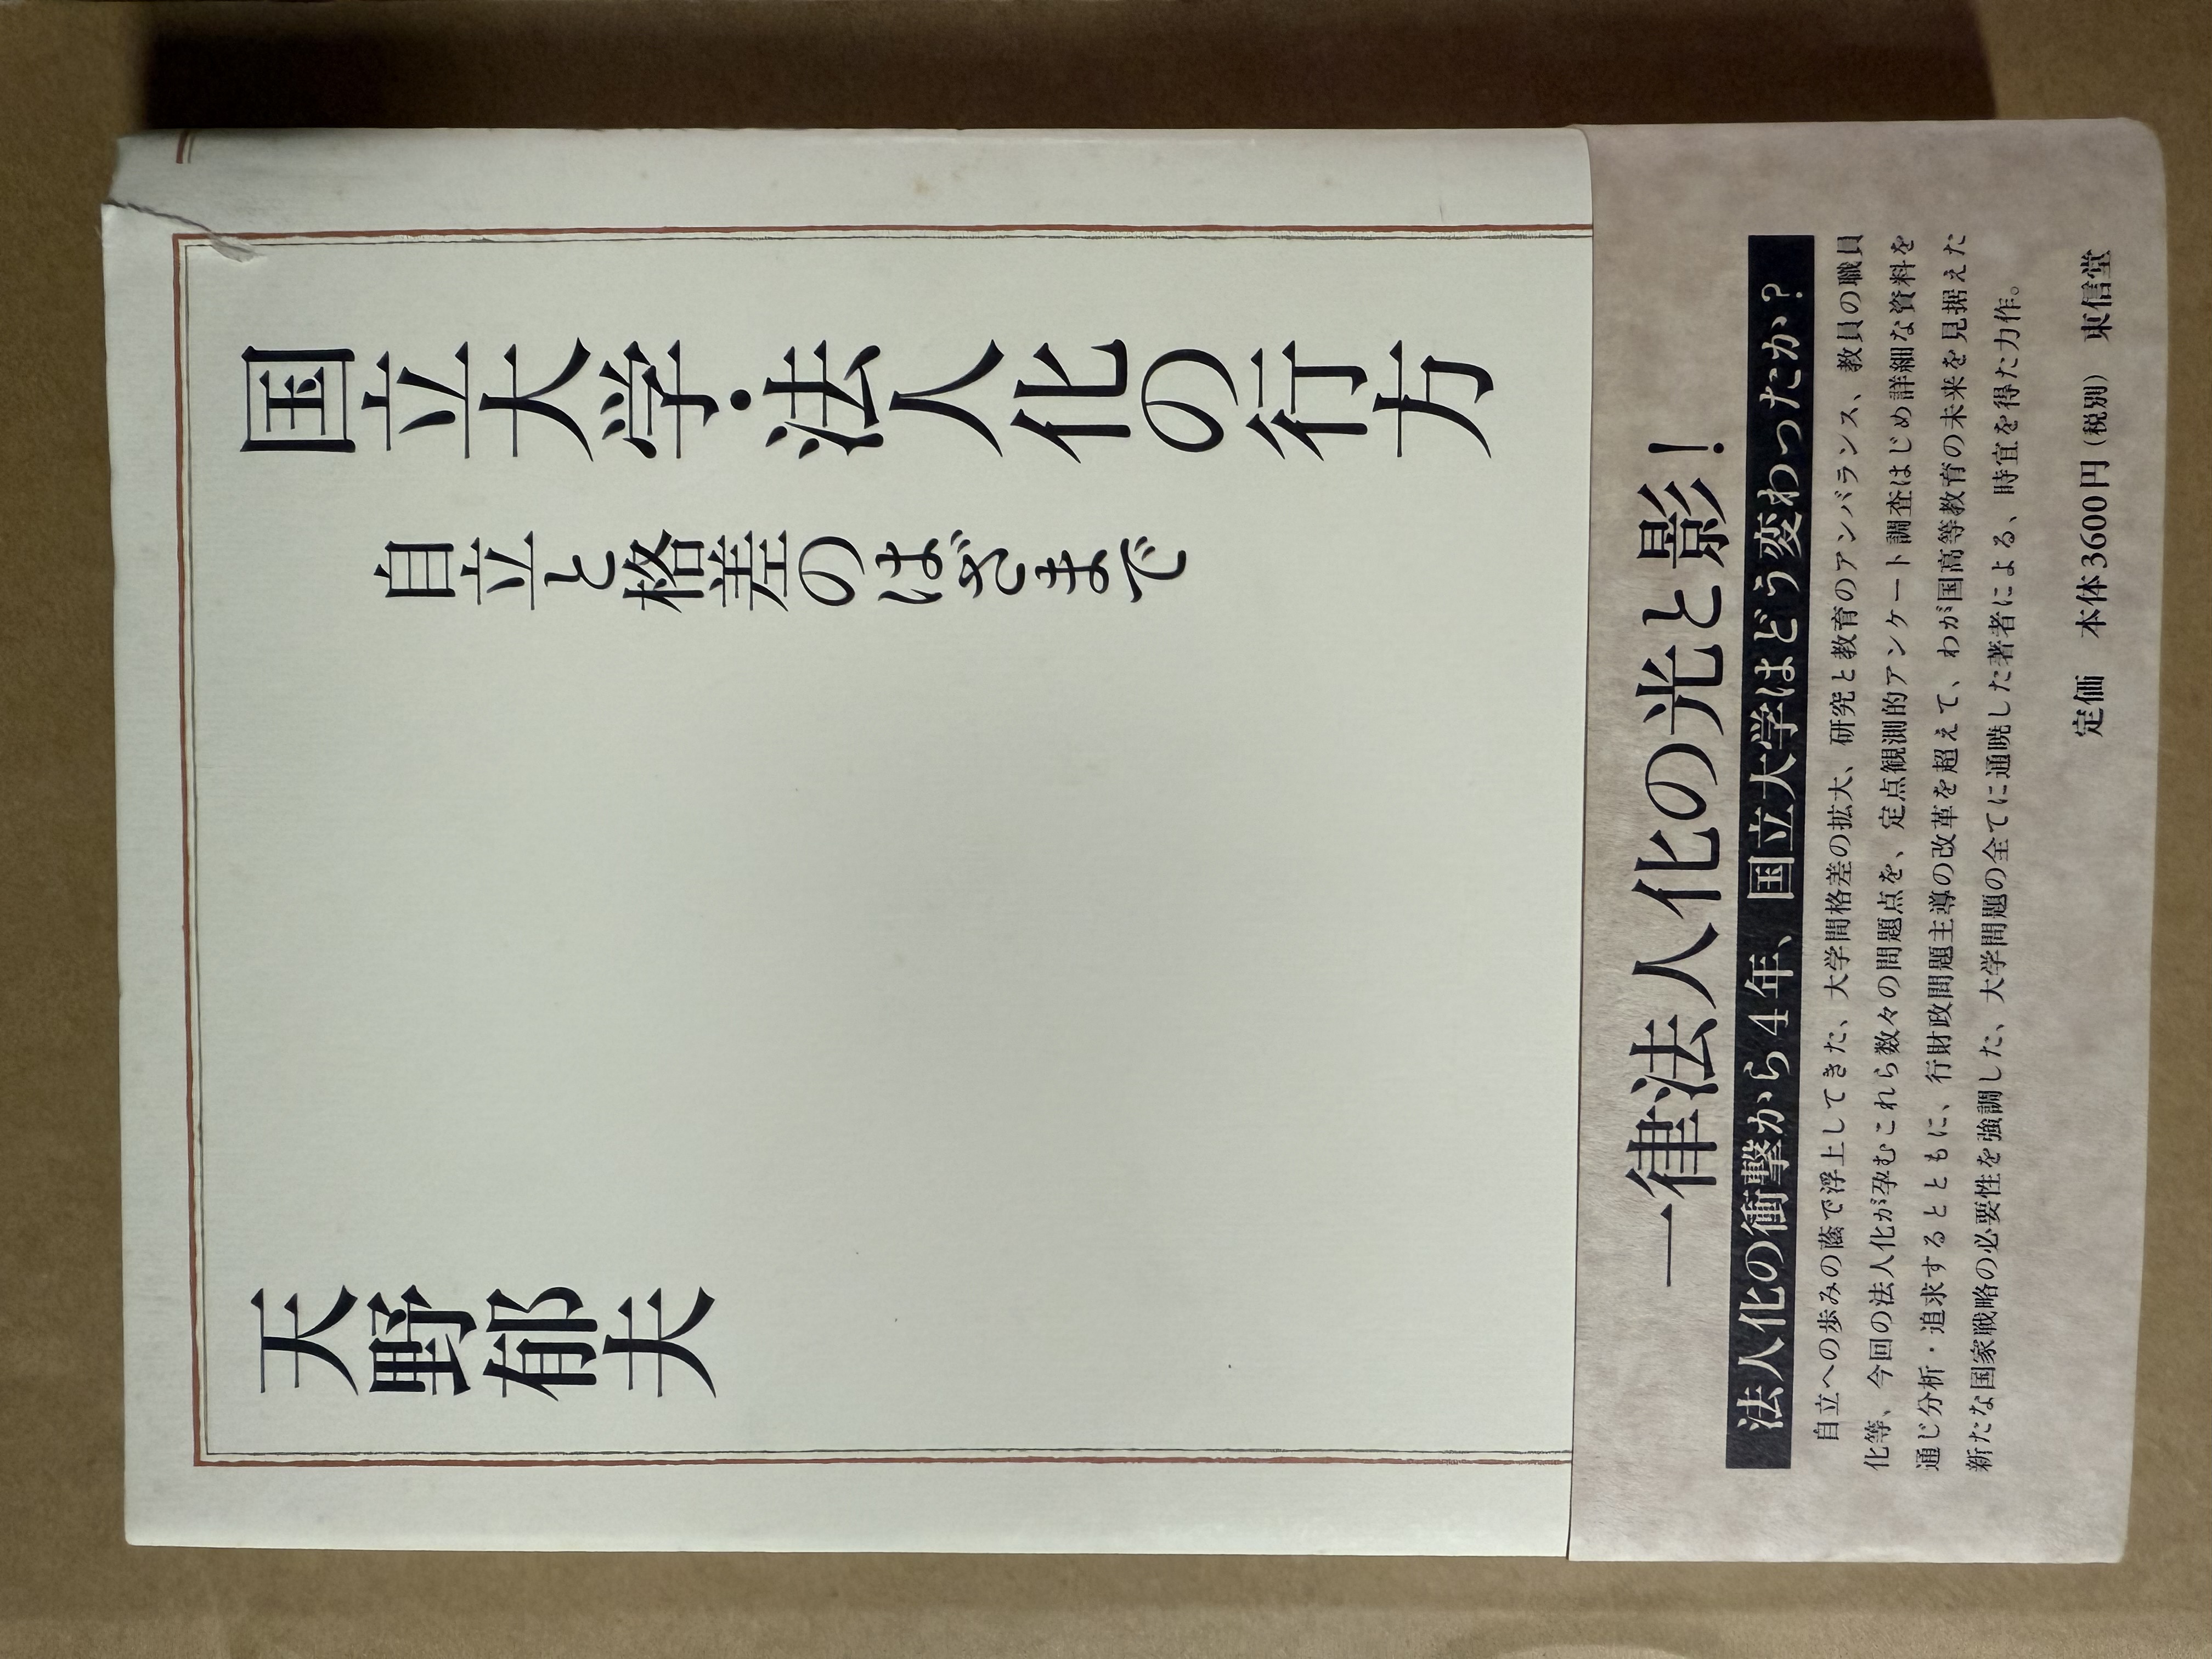 国立大学・法人化の行方
自立と格差のはざまで
天野郁夫
一律法人化の光と影！
法人化の衝撃から4年、国立大学はどう変わったか？
自立への歩みの蔭で浮上してきた、大学間格差の拡大、研究と教育のアンバランス、教員の職員
化等、今回の法人化が孕むこれら数々の問題点を、定点観測的アンケート調査はじめ詳細な資料を
通じ分析・追求するとともに、行財政問題主導の改革を超えて、わが国高等教育の未来を見据えた
新たな国家戦略の必要性を強調した、大学問題の全てに通暁した著者による、時宜を得た力作。
定価 本体3600円（税別） 東信堂